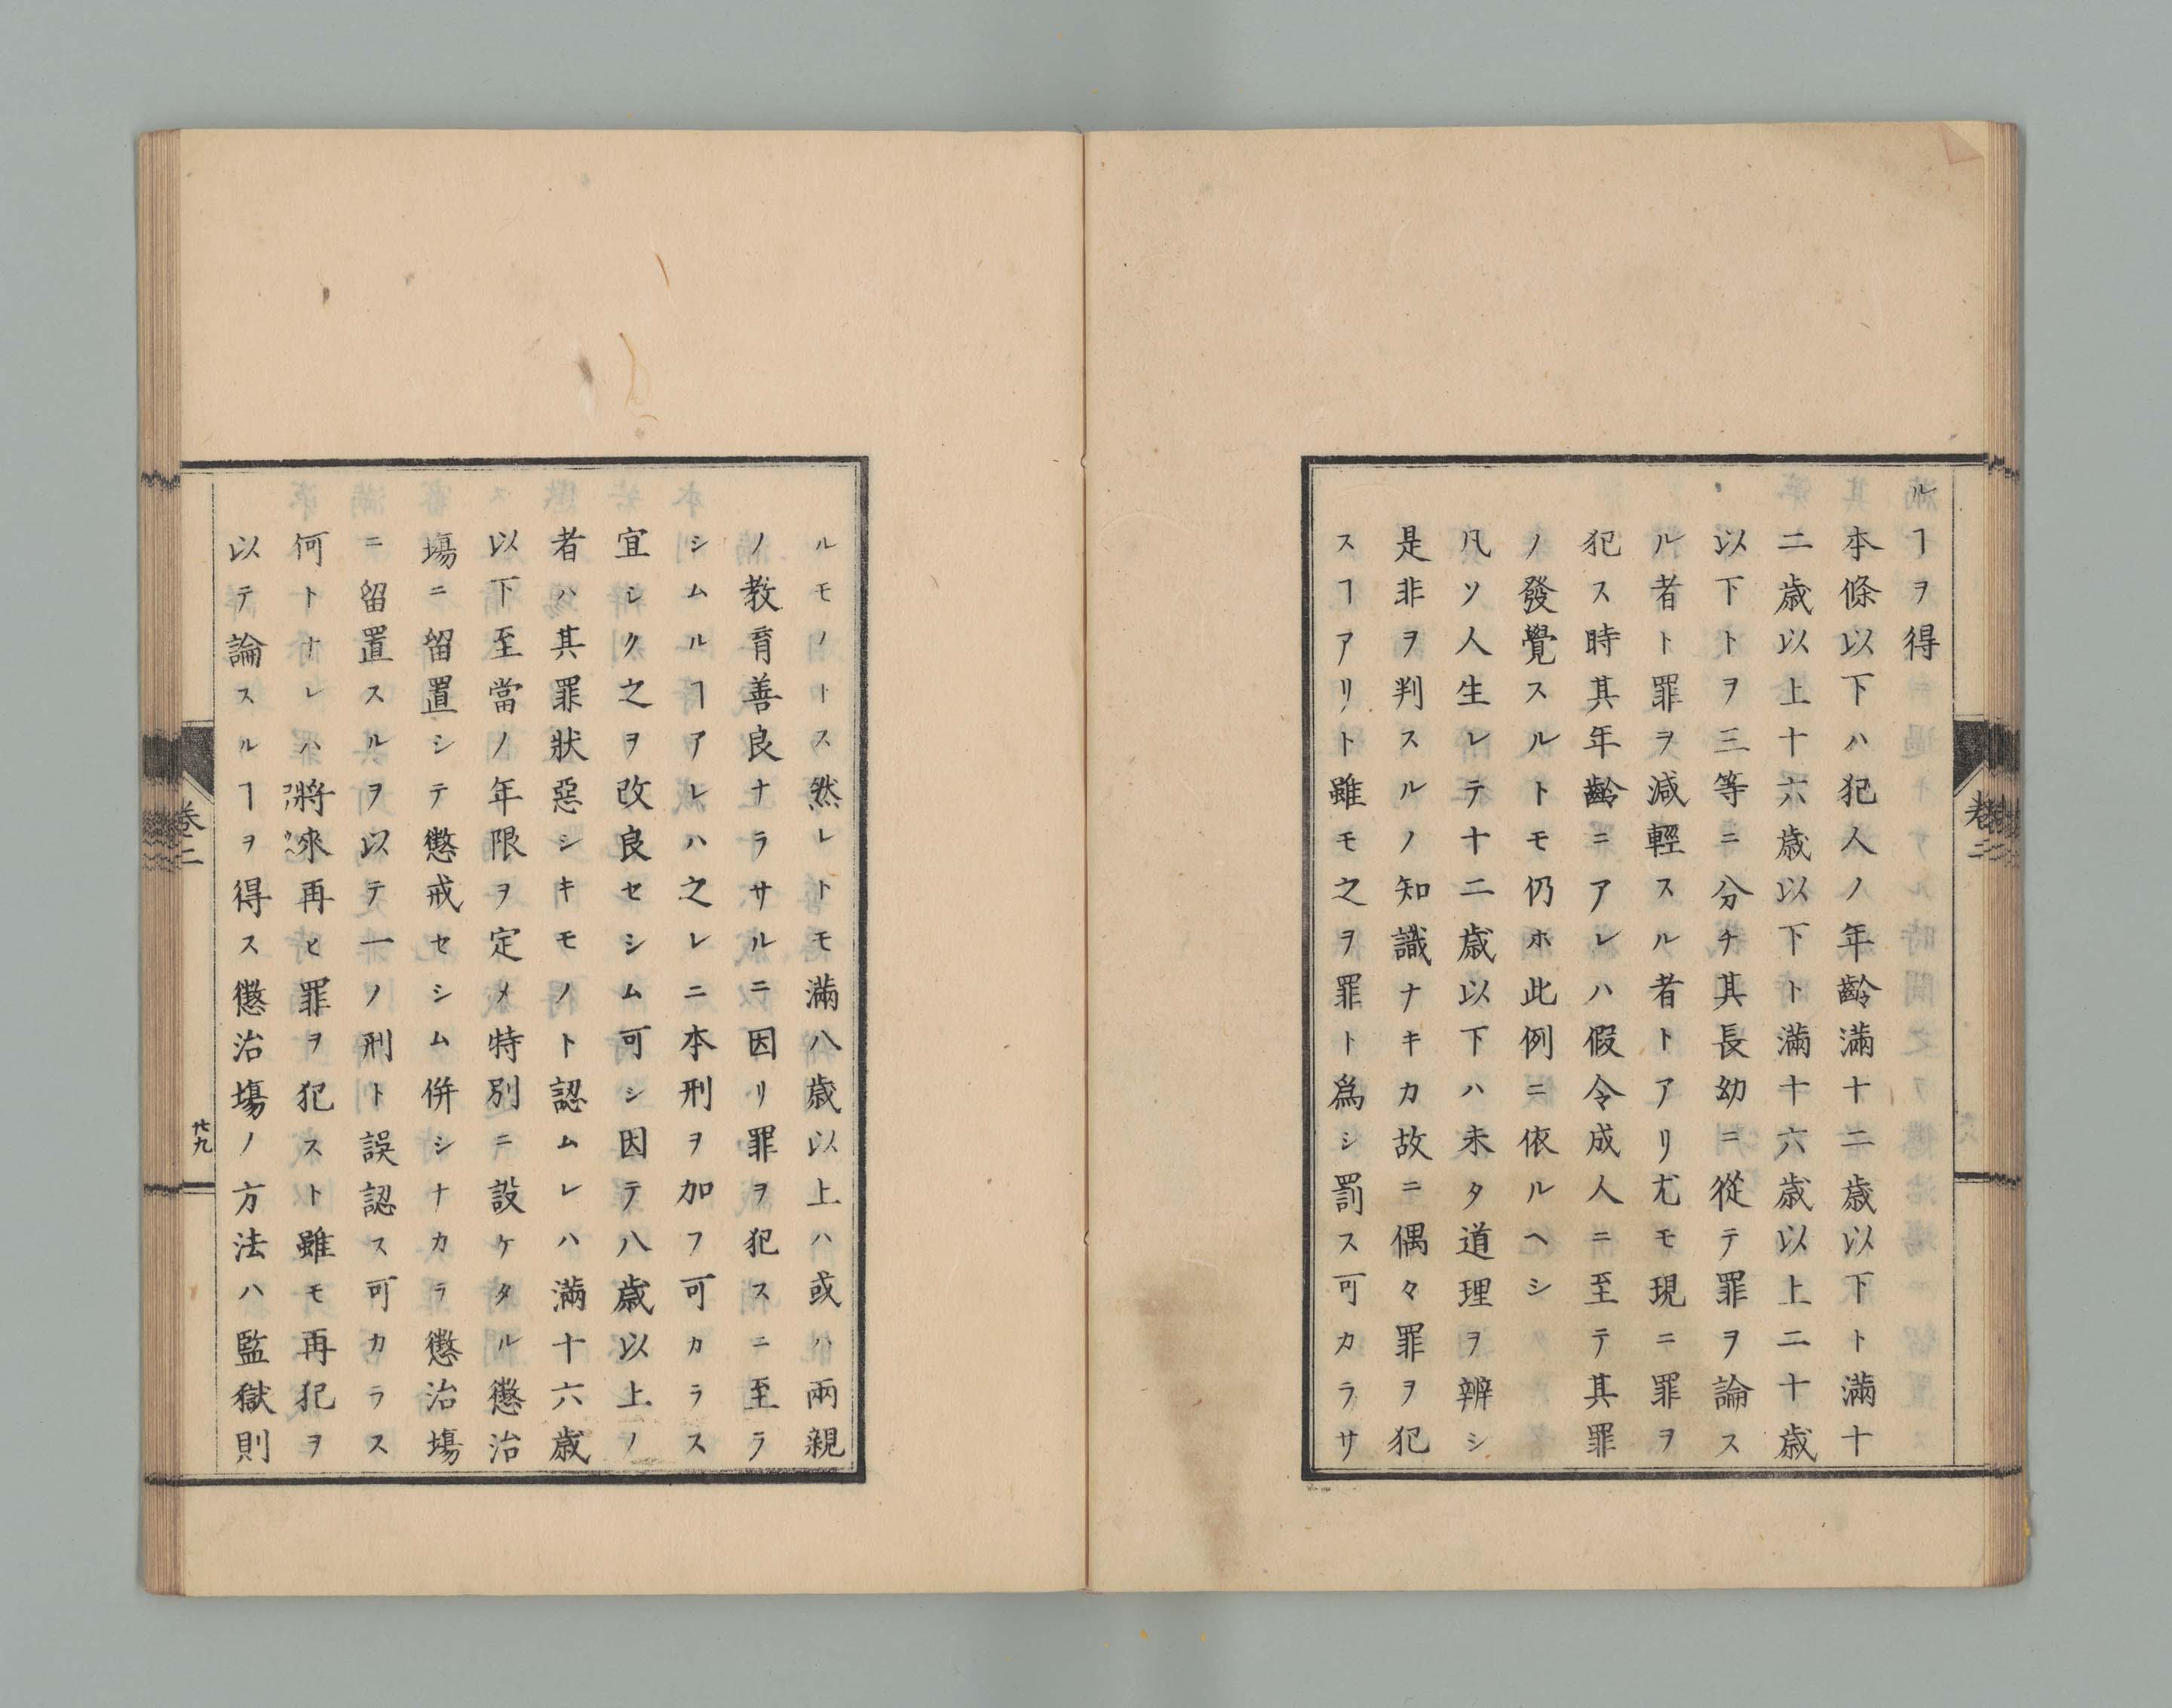 ルヿヲ得
本條以下ハ犯人ノ年齡滿十二歲以下ト滿十
二歲以上十六歲以下ト滿十六歲以上二十歲
以下トヲ三等ニ分チ其長幼ニ從テ罪ヲ論ス
ル者ト罪ヲ減輕スル者トアリ尤モ現ニ罪ヲ
犯ス時其年齡ニアレハ假令成人ニ至テ其罪
ノ發覺スルトモ仍ホ此例ニ依ルヘシ
凡ソ人生レテ十二歲以下ハ未タ道理ヲ辨シ
是非ヲ判スルノ知識ナキカ故ニ偶々罪ヲ犯
スヿアリト雖モ之ヲ罪ト爲シ罰ス可カラサ
卷二
ルモノトス然レトモ滿八歲以上ハ或ハ兩親
ノ教育善良ナラサルニ因リ罪ヲ犯スニ至ラ
シムルヿアレハ之レニ本刑ヲ加フ可カラス
宜シク之ヲ改良セシム可シ因テ八歲以上ノ
者ハ其罪狀惡シキモノト認ムレハ滿十六歲
以下至當ノ年限ヲ定メ特別ニ設ケタル懲治
塲ニ留置シテ懲戒セシム併シナカラ懲治塲
ニ留置スルヲ以テ一ノ刑ト誤認ス可カラス
何トナレハ將來再ヒ罪ヲ犯スト雖モ再犯ヲ
以テ論スルヿヲ得ス懲治塲ノ方法ハ監獄則
卷二
廿九